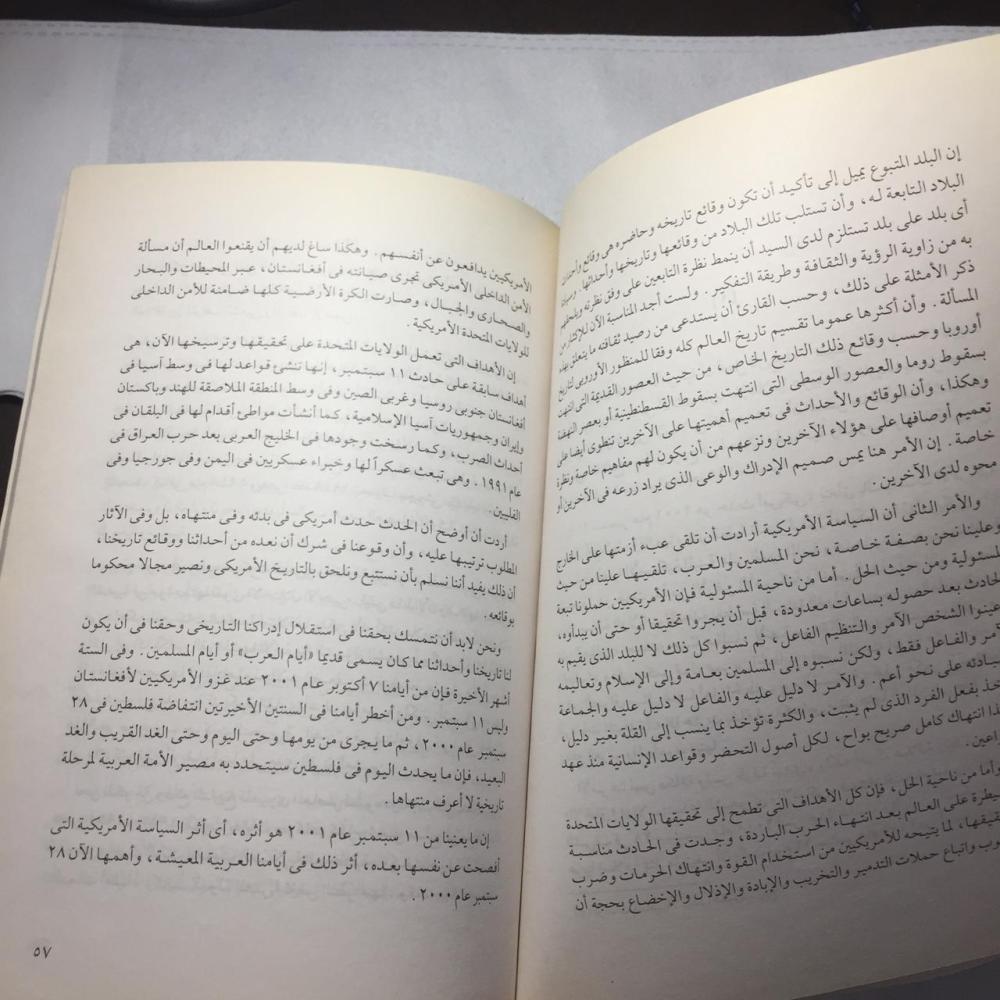 إن البلد المتبوع يميل إلى تأكيد أن تكون وقائع تاريخه وحاضره هى وقائع وأحداث
البلاد التابعة له، وأن تستلب تلك البلاد من وقائعها وتاريخها وأحداثها. وسيادة
أى بلد على بلد تستلزم لدى السيد أن ينمط نظرة التابعين على وفق نظرته ويلحقهم
به من زاوية الرؤية والثقافة وطريقة التفكير. ولست أجد المناسبة الآن للإكثار من
ذكر الأمثلة على ذلك، وحسب القارئ أن يستدعى من رصيد ثقافته ما يتعلق بهذه
المسألة. وأن أكثرها عموما تقسيم تاريخ العالم كله وفقا للمنظور الأوروبى لتاريخ
أوروبا وحسب وقائع ذلك التاريخ الخاص، من حيث العصور القديمة التى انتهت
بسقوط روما والعصور الوسطى التى انتهت بسقوط القسطنطينية أو بعصر النهضة
وهكذا، وأن الوقائع والأحداث فى تعميم أهميتها على الآخرين تنطوى أيضا على
تعميم أوصافها على هؤلاء الآخرين ونزعهم من أن يكون لهم مفاهيم خاصة ونظرة
خاصة. إن الأمر هنا يمس صميم الإدراك والوعى الذى يراد زرعه فى الآخرين أو
محوه لدى الآخرين.
والأمر الثانى أن السياسة الأمريكية أرادت أن تلقى عبء أزمتها على الخارج
وعلينا نحن بصفة خاصة، نحن المسلمين والعرب، تلقيها علينا من حيث
المسئولية ومن حيث الحل. أما من ناحية المسئولية فإن الأمريكيين حملونا تبعة
الحادث بعد حصوله بساعات معدودة، قبل أن يجروا تحقيقا أو حتى أن يبدأوه،
وعينوا الشخص الآمر والتنظيم الفاعل، ثم نسبوا كل ذلك لا للبلد الذى يقيم به
الآمر والفاعل فقط، ولكن نسبوه إلى المسلمين بعامة وإلى الإسلام وتعاليمه
ومبادئه على نحو أعم. والآمر لا دليل عليه والفاعل لا دليل عليه والجماعة
تؤخذ بفعل الفرد الذى لم يثبت، والكثرة تؤخذ بما ينسب إلى القلة بغير دليل،
هذا انتهاك كامل صريح بواح، لكل أصول التحضر وقواعد الإنسانية منذ عهد
وأما من ناحية الحل، فإن كل الأهداف التى تطمح إلى تحقيقها الولايات المتحدة
على العالم بعد انتهاء الحرب الباردة، وجدت فى الحادث مناسبة
لما يتيحه للأمريكيين من استخدام القوة وانتهاك الحرمات وضرب
واتباع حملات التدمير والتخريب والإبادة والإذلال والإخضاع بحجة أن
الأمريكيين يدافعون عن أنفسهم. وهكذا ساغ لديهم أن يقنعوا العالم أن مسألة
الأمن الداخلى الأمريكى تجرى صيانته فى أفغانستان، عبر المحيطات والبحار
والصحارى والجبال، وصارت الكرة الأرضية كلها ضامنة للأمن الداخلى
للولايات المتحدة الأمريكية.
إن الأهداف التى تعمل الولايات المتحدة على تحقيقها وترسيخها الآن، هى
أهداف سابقة على حادث ١١ سبتمبر، إنها تنشئ قواعد لها فى وسط آسيا فى
أفغانستان جنوبى روسيا وغربى الصين وفى وسط المنطقة الملاصقة للهند وباكستان
وإيران وجمهوريات آسيا الإسلامية، كما أنشأت مواطئ أقدام لها فى البلقان فى
أحداث الصرب، وكما رسخت وجودها فى الخليج العربى بعد حرب العراق فى
عام ١٩٩١. وهى تبعث عسكراً لها وخبراء عسكريين فى اليمن وفى جورجيا وفى
الفلبين.
أردت أن أوضح أن الحدث حدث أمريكى فى بدئه وفى منتهاه، بل وفى الآثار
المطلوب ترتيبها عليه، وأن وقوعنا فى شرك أن نعده من أحداثنا ووقائع تاريخنا،
أن ذلك يفيد أننا نسلم بأن نستتبع ونلحق بالتاريخ الأمريكى ونصير مجالا محكوما
بوقائعه.
ونحن لابد أن نتمسك بحقنا فى استقلال إدراكنا التاريخى وحقنا فى أن يكون
لنا تاريخنا وأحداثنا مما كان يسمى قديما «أيام العرب» أو أيام المسلمين. وفى الستة
أشهر الأخيرة فإن من أيامنا ٧ أكتوبر عام ٢٠٠١ عند غزو الأمريكيين لأفغانستان
وليس ١١ سبتمبر. ومن أخطر أيامنا فى السنتين الأخيرتين انتفاضة فلسطين فى ٢٨
سبتمبر عام ٢٠٠٠، ثم ما يجرى من يومها وحتى اليوم وحتى الغد القريب والغد
البعيد، فإن ما يحدث اليوم فى فلسطين سيتحدد به مصير الأمة العربية لمرحلة
تاريخية لا أعرف منتهاها.
إن ما يعنينا من ١١ سبتمبر عام ٢٠٠١ هو أثره، أى أثر السياسة الأمريكية التى
أفصحت عن نفسها بعده، أثر ذلك فى أيامنا العربية المعيشة، وأهمها الآن ٢٨
سبتمبر عام ٢٠٠٠.
٥٧